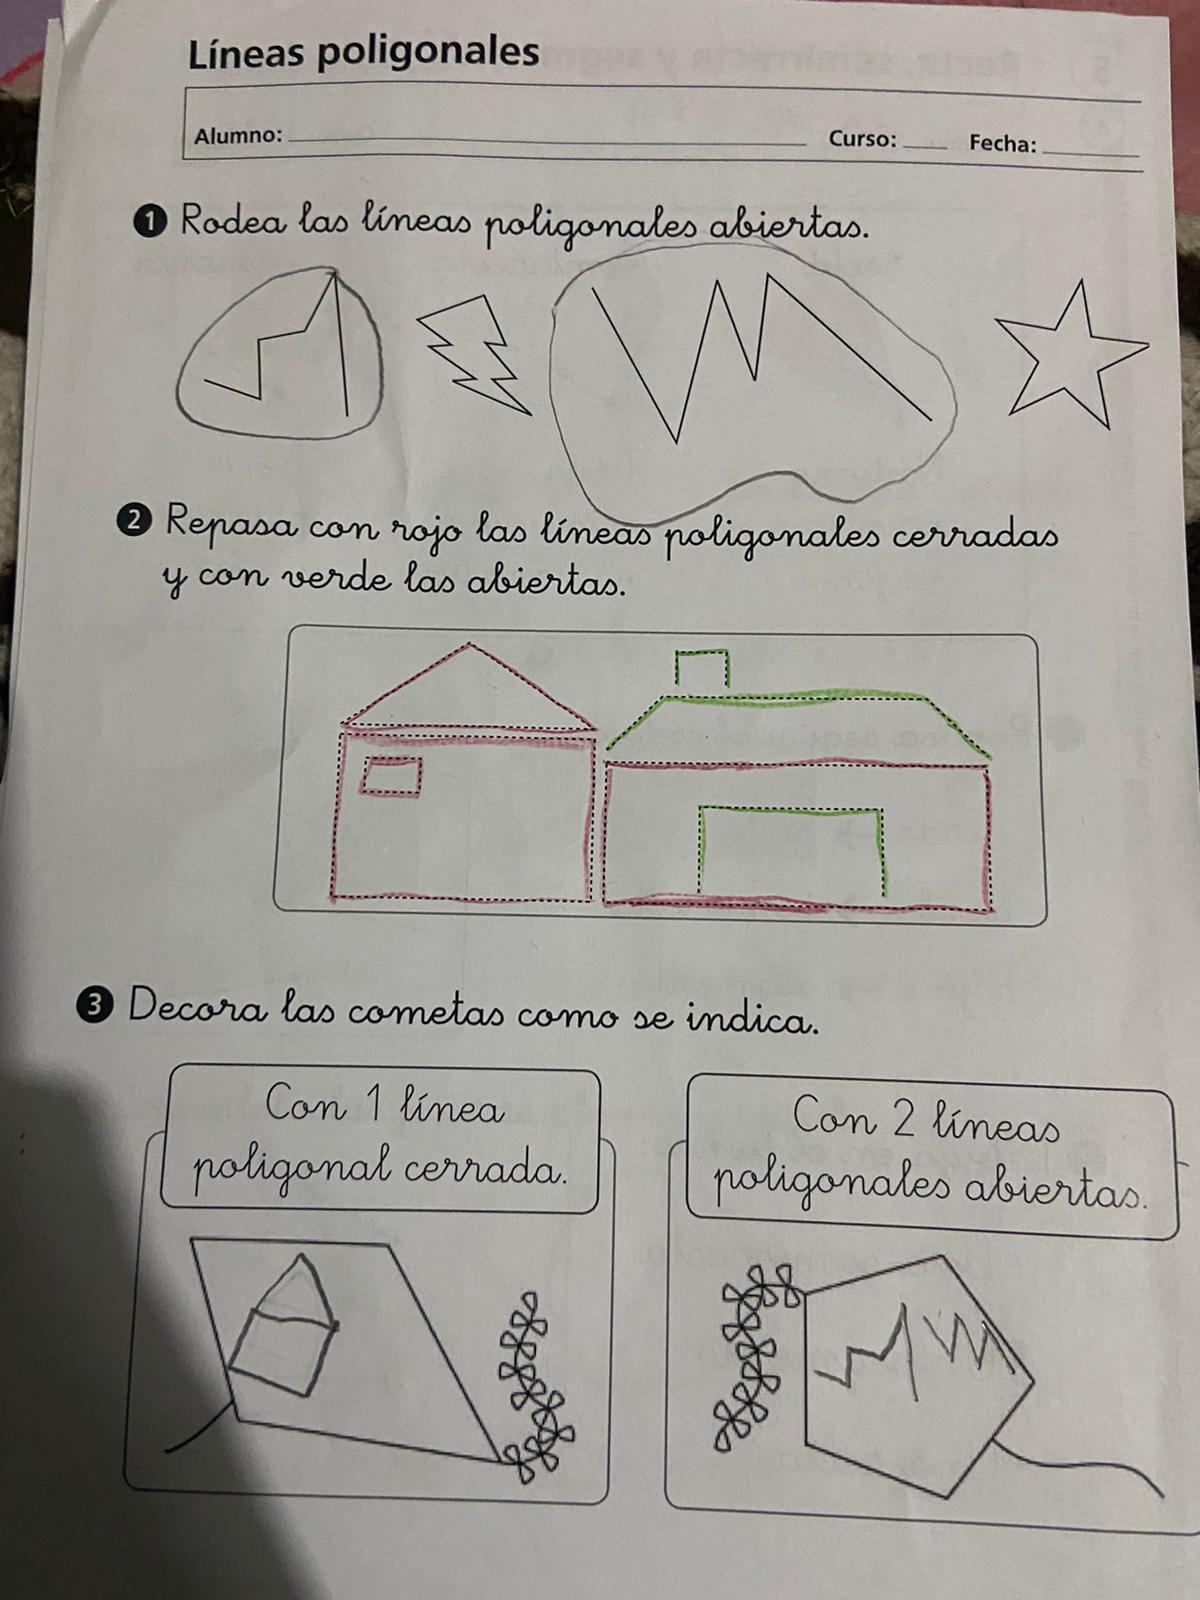 Líneas poligonales
Alumno: Curso: Fecha:
1 Rodea las líneas poligonales abiertas.
2 Repasa con rojo las líneas poligonales cerradas
y con verde las abiertas.
3 Decora las cometas como se indica.
Con 1 línea
poligonal cerrada.
Con 2 líneas
poligonales abiertas.